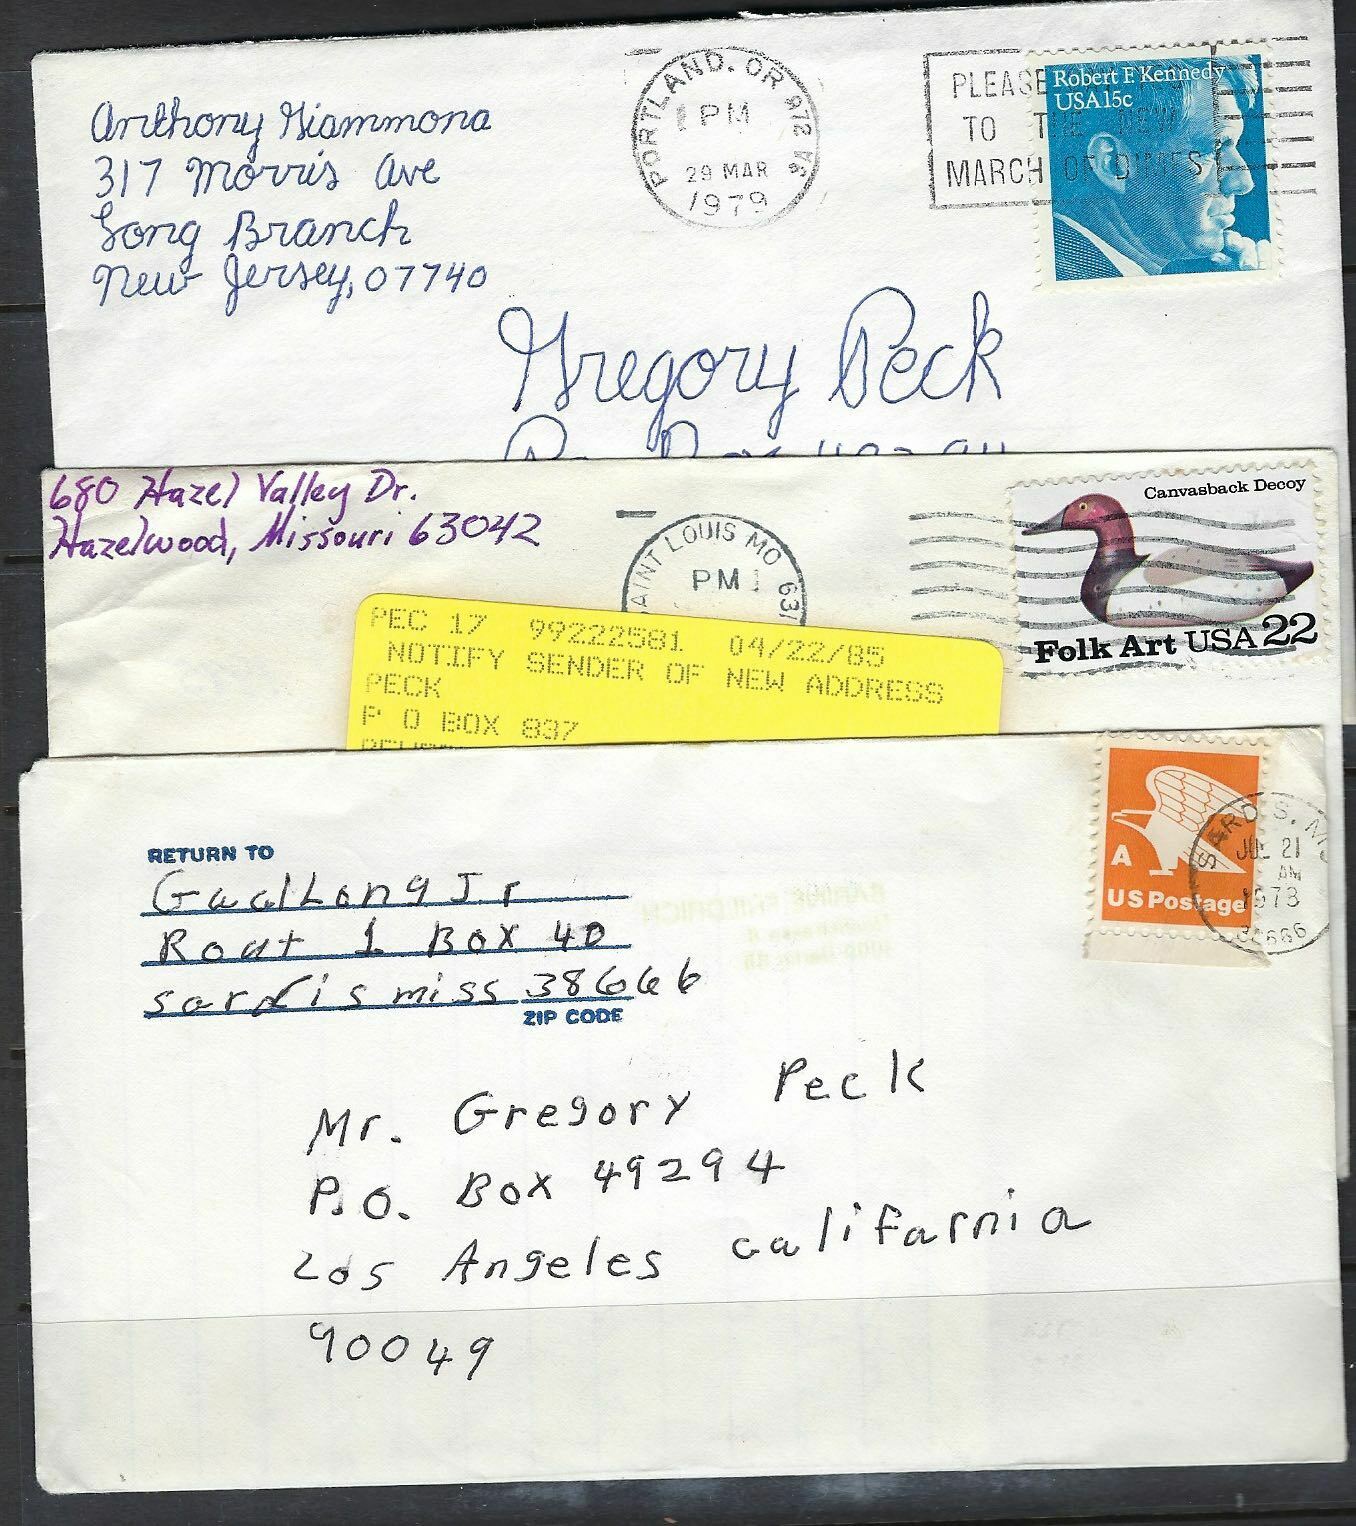 Anthony Giammona
317 Morris Ave
Long Branch
New Jersey, 07740
PORTLAND, OR 972
PM
29 MAR
1979
PLEASE
TO THE NEW
MARCH OF DIMES
Robert F. Kennedy
USA 15c
Gregory Peck
680 Hazel Valley Dr.
Hazelwood, Missouri 63042
SAINT LOUIS MO 631
PM
Canvasback Decoy
Folk Art USA 22
PEC 17 99222581 04/22/85
NOTIFY SENDER OF NEW ADDRESS
PECK
P O BOX 837
A
US Postage
SARDIS, M
JUL 21
AM
1978
38666
RETURN TO
Long Jr
Rout 1 Box 40
sardis miss 38666
ZIP CODE
Mr. Gregory Peck
P.O. Box 49294
Los Angeles califarnia
90049